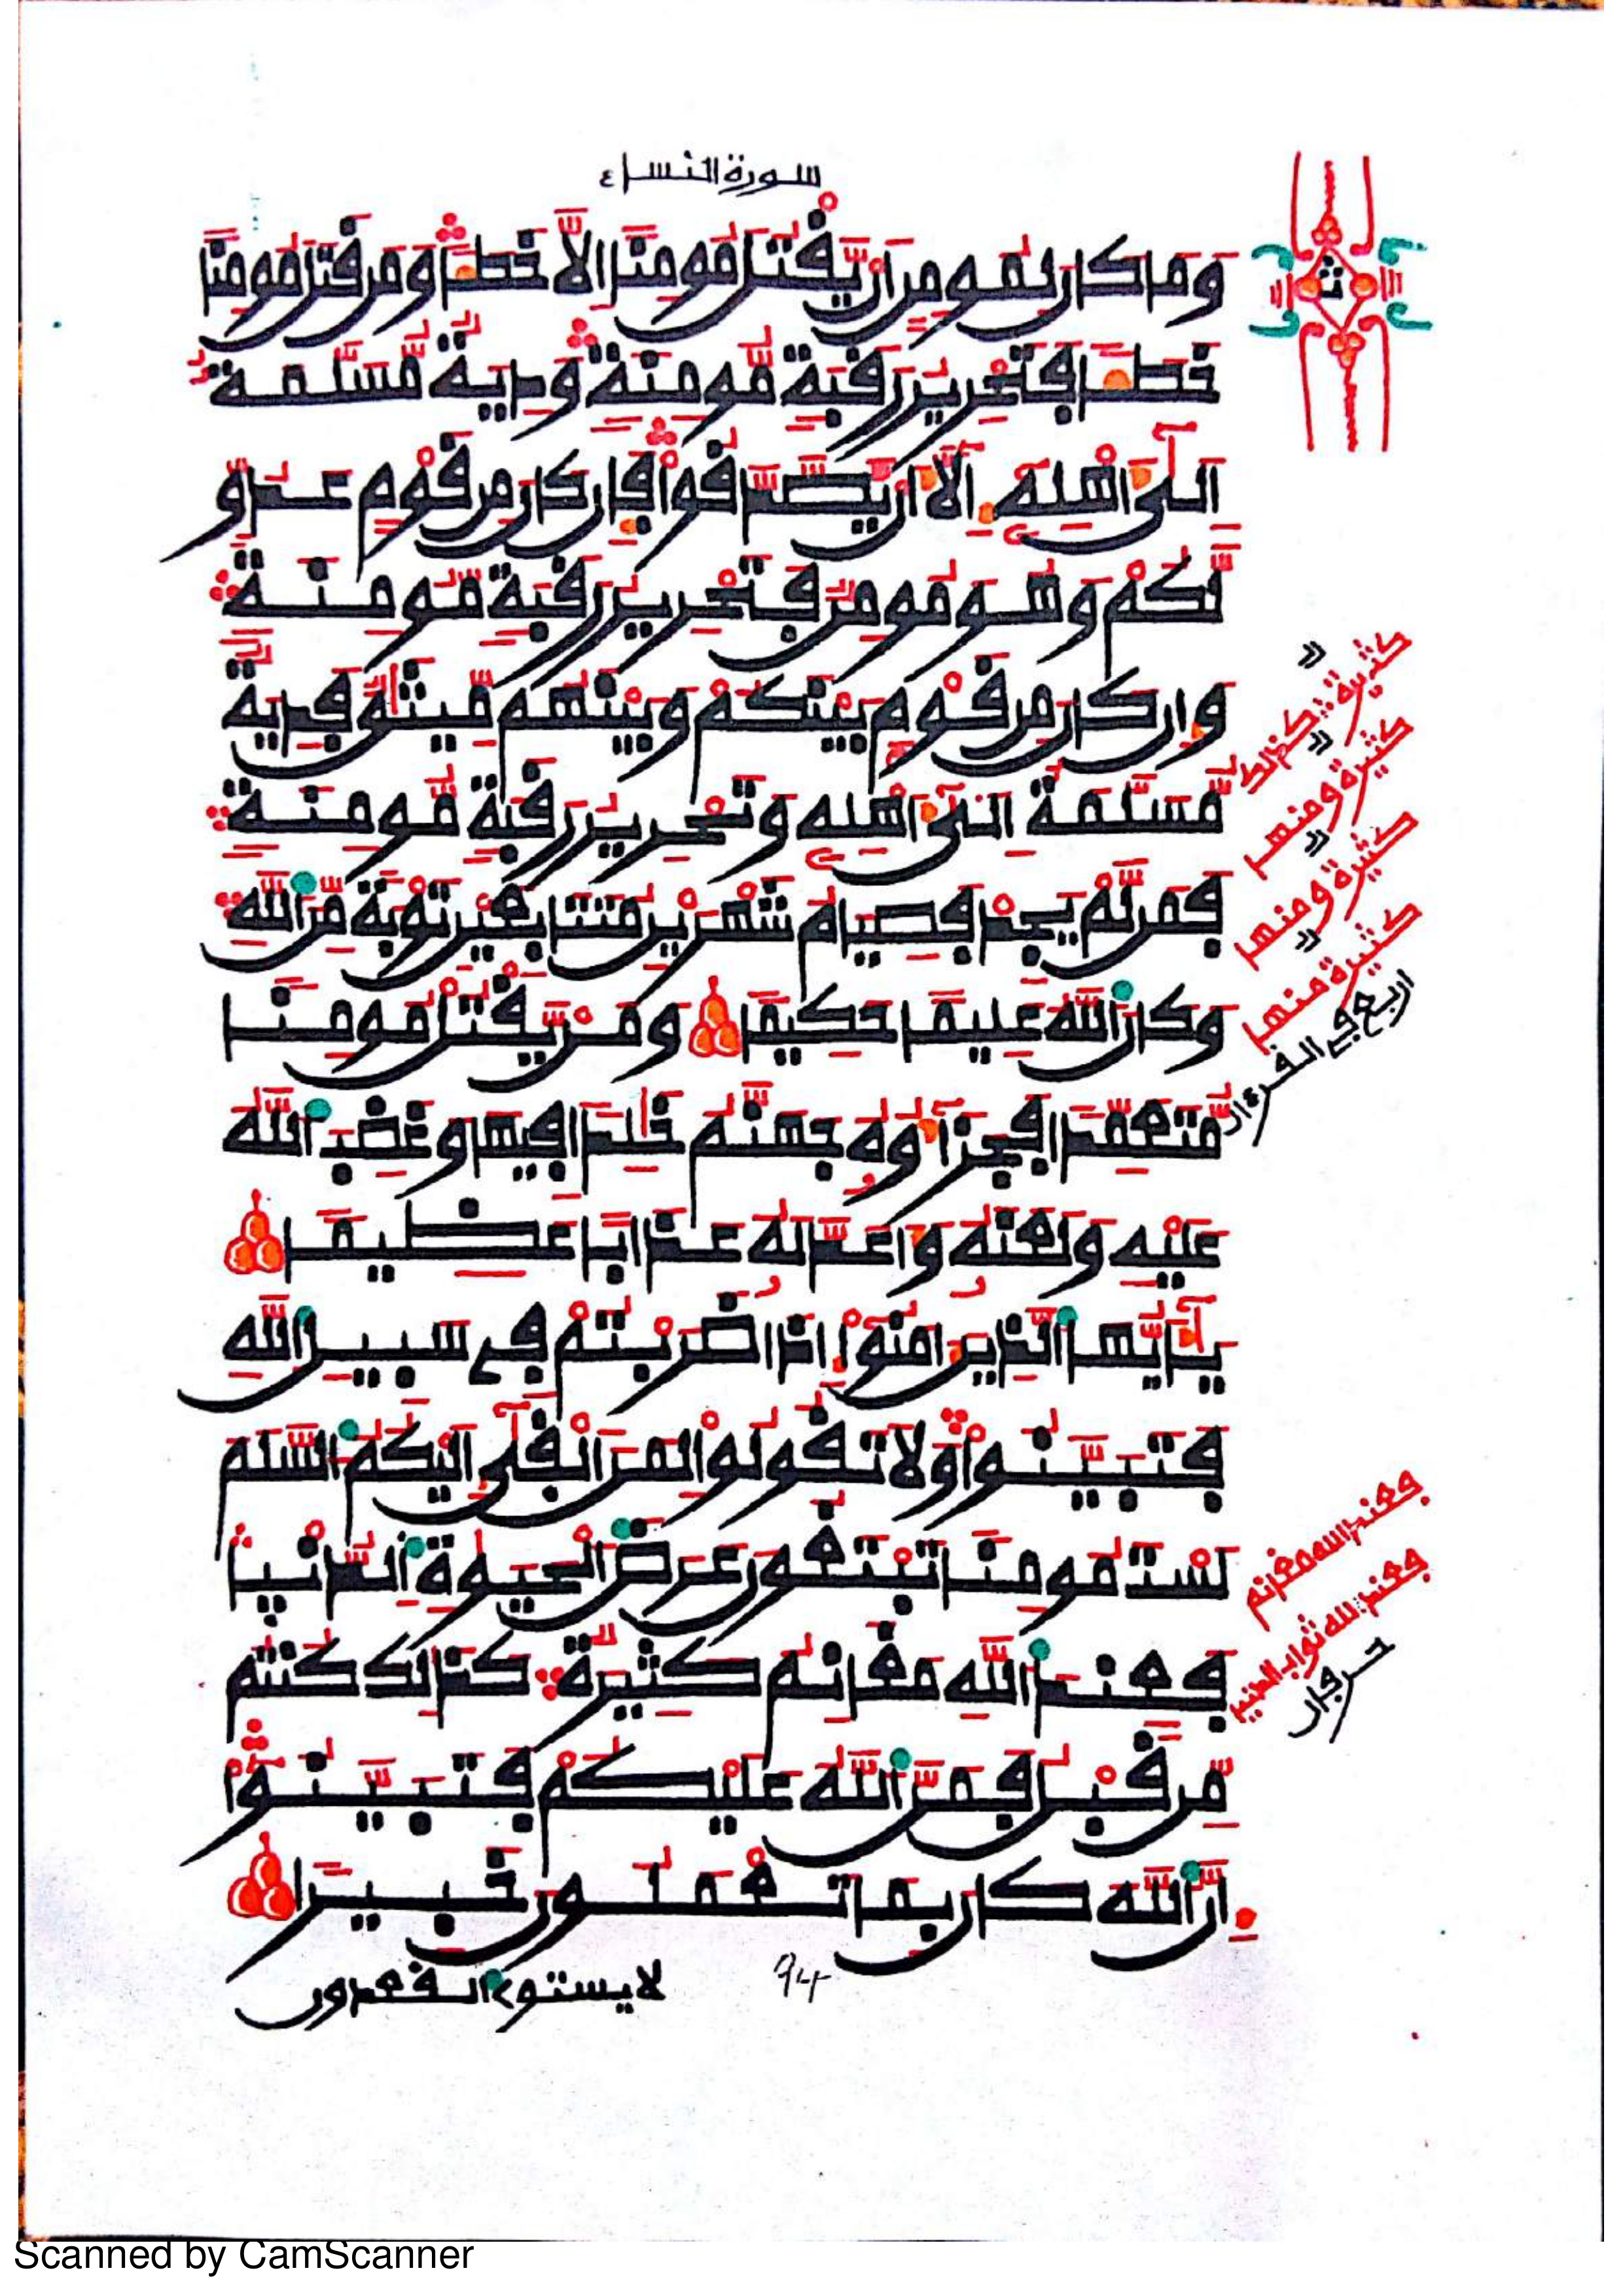 سورة النساء
وَمَا كَانَ لِمُومِنٍ اَنْ يَّقْتُلَ مُومِنًا اِلَّا خَطَـًٔا وَمَن قَتَلَ مُومِنًا
خَطَـًٔا فَتَحْرِيرُ رَقَبَةٍ مُّومِنَةٍ وَدِيَةٌ مُّسَلَّمَةٌ
اِلَىٰٓ أَهْلِهِۦٓ إِلَّآ أَنْ يَّصَّدَّقُواْ فَإِن كَانَ مِن قَوْمٍ عَدُوٍّ
لَّكُمْ وَهُوَ مُومِنٌ فَتَحْرِيرُ رَقَبَةٍ مُّومِنَةٍ
وَإِن كَانَ مِن قَوْمٍ بَيْنَكُمْ وَبَيْنَهُم مِّيثَٰقٌ فَدِيَةٌ
مُّسَلَّمَةٌ اِلَىٰٓ أَهْلِهِۦ وَتَحْرِيرُ رَقَبَةٍ مُّومِنَةٍ
فَمَن لَّمْ يَجِدْ فَصِيَامُ شَهْرَيْنِ مُتَتَابِعَيْنِ تَوْبَةً مِّنَ اَللَّهِ
وَكَانَ اَللَّهُ عَلِيمًا حَكِيمًا وَمَنْ يَّقْتُلْ مُومِنًا
مُّتَعَمِّدًا فَجَزَآؤُهُۥ جَهَنَّمُ خَٰلِدًا فِيهَا وَغَضِبَ اَللَّهُ
عَلَيْهِ وَلَعَنَهُۥ وَأَعَدَّ لَهُۥ عَذَابًا عَظِيمًا
يَٰٓأَيُّهَا اَلَّذِينَ ءَامَنُوٓاْ إِذَا ضَرَبْتُمْ فِے سَبِيلِ اِللَّهِ
فَتَبَيَّنُواْ وَلَا تَقُولُواْ لِمَنَ اَلْقَىٰٓ إِلَيْكُمُ اُلسَّلَمَ
لَسْتَ مُومِنًا تَبْتَغُونَ عَرَضَ اَلْحَيَوٰةِ اِلدُّنْيَا
فَعِندَ اَللَّهِ مَغَانِمُ كَثِيرَةٌ كَذَٰلِكَ كُنتُم
مِّن قَبْلُ فَمَنَّ اَللَّهُ عَلَيْكُمْ فَتَبَيَّنُوٓاْ
إِنَّ اَللَّهَ كَانَ بِمَا تَعْمَلُونَ خَبِيرًا
94
لا يستوے القعدون
ث
كثيرة كذلك
كثيرة ومنها
كثيرة ومنها
كثيرة منها
اربع في القرءان
فعند الله مغانم
فعند الله ثواب الدنيا
حرفان
Scanned by CamScanner